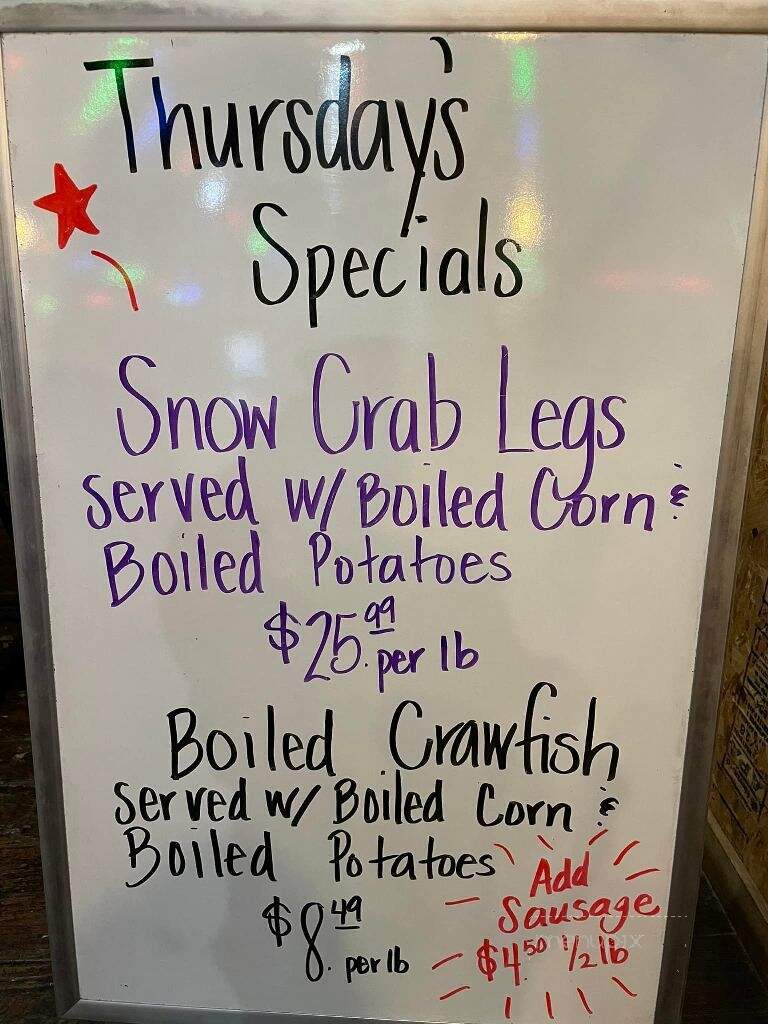 Thursday's
Specials
Snow Crab Legs
Served w/ Boiled Corn &
Boiled Potatoes
$25.99 per lb
Boiled Crawfish
Served w/ Boiled Corn &
Boiled Potatoes
$8.49 per lb
Add
Sausage
$4.50 1/2 lb
menupix